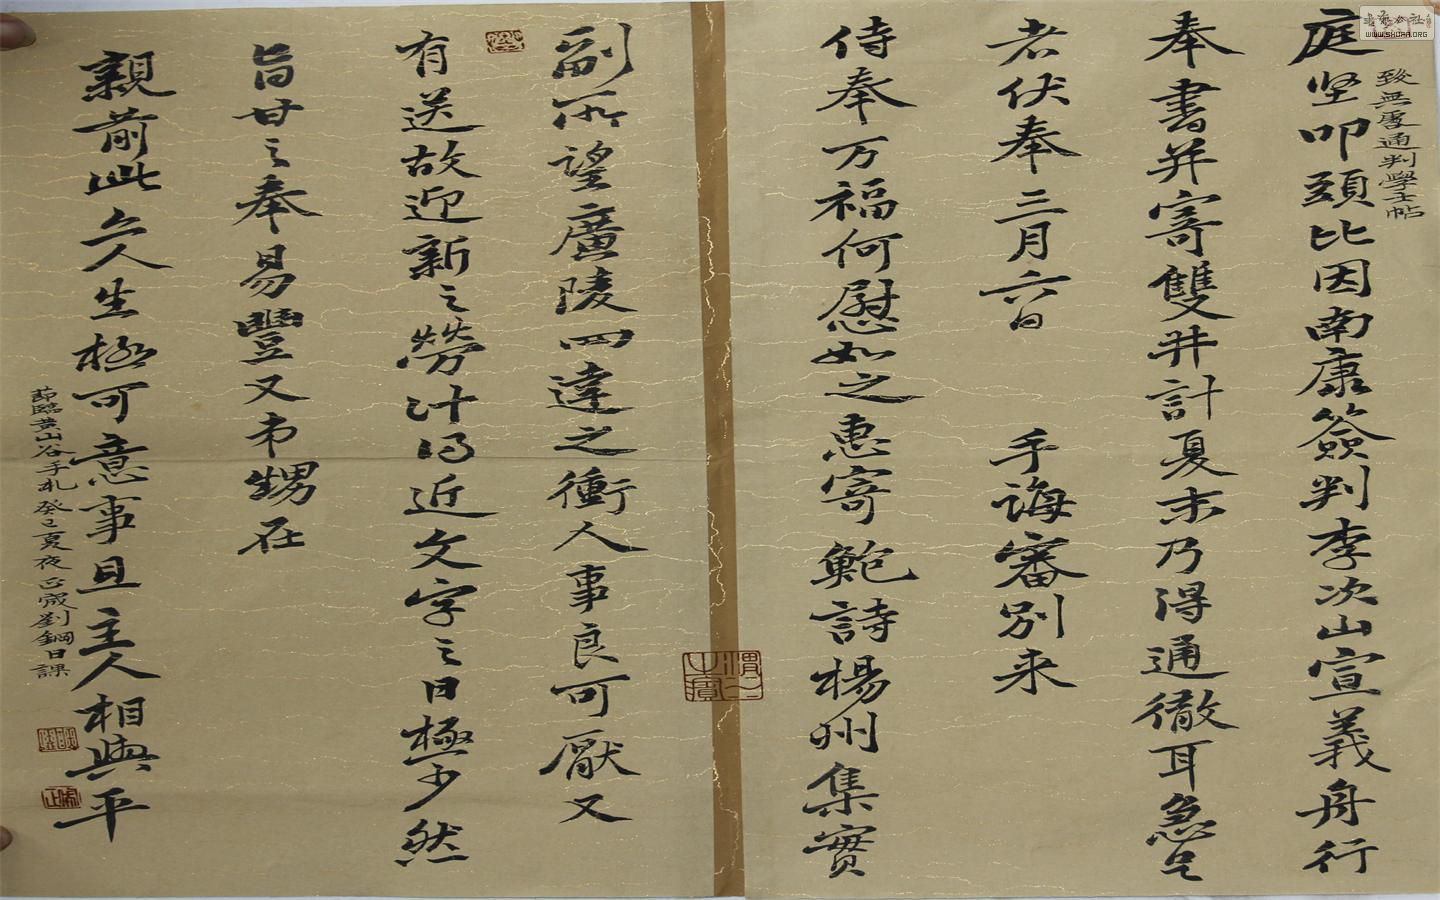 致無咎通判學士帖
庭坚叩頭比因南康簽判李次山宣義舟行
奉書并寄雙井計夏末乃得通徹耳急足
者伏奉三月六日 手誨審別来
侍奉万福何慰如之惠寄鮑詩楊州集實
副所望廣陵四達之衝人事良可厭又
有送故迎新之勞计得近文字之日極少然
旨甘之奉易豐又市甥在
親前此亦人生極可意事且主人相與平
節臨黄山谷手札癸巳夏夜 劉鋼日課
WWW.SHUFA.ORG